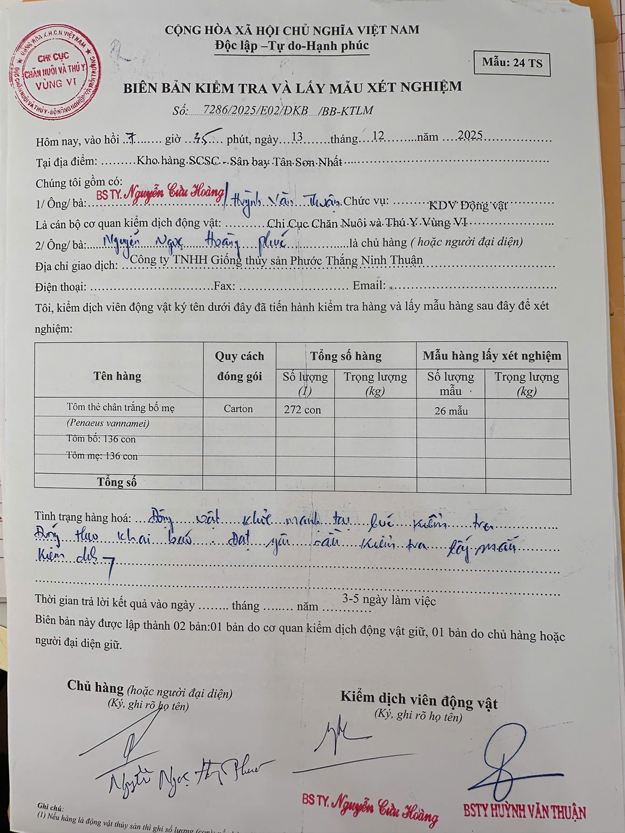 CỘNG HÒA XÃ HỘI CHỦ NGHĨA VIỆT NAM
Độc lập –Tự do-Hạnh phúc
Mẫu: 24 TS
CHI CỤC
CHĂN NUÔI VÀ THÚ Y
VÙNG VI
BIÊN BẢN KIỂM TRA VÀ LẤY MẪU XÉT NGHIỆM
Số: 7286/2025/E02/ĐKB /BB-KTLM
Hôm nay, vào hồi 7 giờ 35 phút, ngày 13 tháng 12 năm 2025
Tại địa điểm: Kho hàng SCSC - Sân bay Tân Sơn Nhất
Chúng tôi gồm có:
1/ Ông/ bà: BS TY. Nguyễn Cửu Hoàng / Huỳnh Văn Thuận Chức vụ: KDV Động vật
Là cán bộ cơ quan kiểm dịch động vật: Chi Cục Chăn Nuôi và Thú Y Vùng VI
2/ Ông/ bà: Nguyễn Ngọc Hoàng Phúc là chủ hàng ( hoặc người đại diện)
Địa chỉ giao dịch: Công ty TNHH Giống thủy sản Phước Thắng Ninh Thuận
Điện thoại: Fax: Email:
Tôi, kiểm dịch viên động vật ký tên dưới đây đã tiến hành kiểm tra hàng và lấy mẫu hàng sau đây để xét
nghiệm:
Tên hàng Quy cách đóng gói Tổng số hàng Mẫu hàng lấy xét nghiệm
Số lượng (1) Trọng lượng (kg) Số lượng mẫu Trọng lượng (kg)
Tôm thẻ chân trắng bố mẹ Carton 272 con 26 mẫu
(Penaeus vannamei)
Tôm bố: 136 con
Tôm mẹ: 136 con
Tổng số
Tình trạng hàng hoá: Động vật khỏe mạnh tại lúc kiểm tra
Đúng theo khai báo. Đạt yêu cầu kiểm tra lấy mẫu
Kiểm dịch
Thời gian trả lời kết quả vào ngày tháng năm 3-5 ngày làm việc
Biên bản này được lập thành 02 bản:01 bản do cơ quan kiểm dịch động vật giữ, 01 bản do chủ hàng hoặc
người đại diện giữ.
Chủ hàng (hoặc người đại diện)
(Ký, ghi rõ họ tên)
Kiểm dịch viên động vật
(Ký, ghi rõ họ tên)
BS TY. Nguyễn Cửu Hoàng
BSTY HUỲNH VĂN THUẬN
Ghi chú:
(1) Nếu hàng là động vật thủy sản thì ghi số lượng